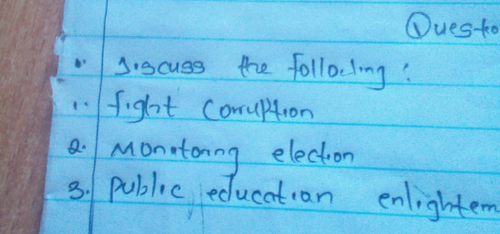 Questio
1. Discuss the following:
1. fight Corruption
2. Monitoring election
3. Public education enlightem